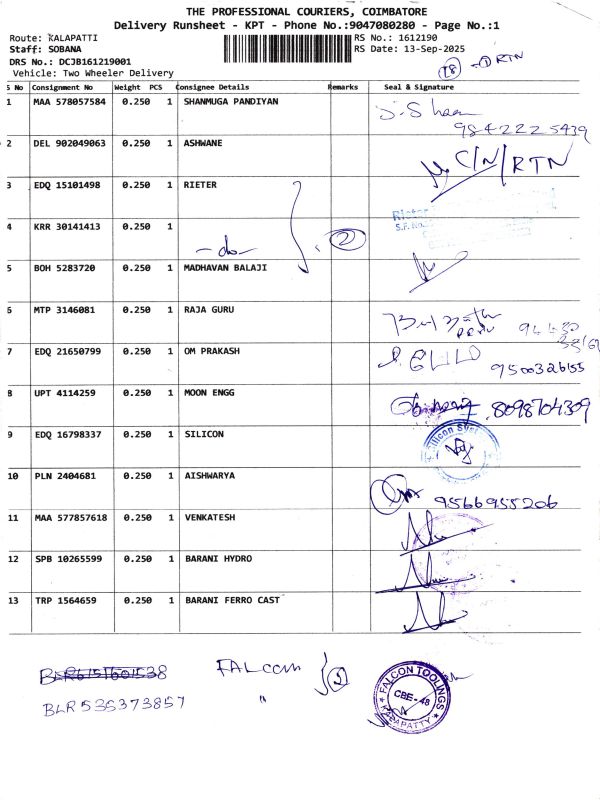 THE PROFESSIONAL COURIERS, COIMBATORE
Delivery Runsheet - KPT - Phone No.:9047080280 - Page No.:1
Route: KALAPATTI RS No.: 1612190
Staff: SOBANA RS Date: 13-Sep-2025
DRS No.: DCJB161219001
Vehicle: Two Wheeler Delivery
18 - 1 RTN
S No Consignment No Weight PCS Consignee Details Remarks Seal & Signature
1 MAA 578057584 0.250 1 SHANMUGA PANDIYAN
9842225439
2 DEL 902049063 0.250 1 ASHWANE C/N/RTN
3 EDQ 15101498 0.250 1 RIETER
Rieter
S.F. No.
4 KRR 30141413 0.250 1 -do- 2
5 BOH 5283720 0.250 1 MADHAVAN BALAJI
6 MTP 3146081 0.250 1 RAJA GURU
7 EDQ 21650799 0.250 1 OM PRAKASH 9500326155
8 UPT 4114259 0.250 1 MOON ENGG 8098704309
9 EDQ 16798337 0.250 1 SILICON
10 PLN 2404681 0.250 1 AISHWARYA 9566955206
11 MAA 577857618 0.250 1 VENKATESH
12 SPB 10265599 0.250 1 BARANI HYDRO
13 TRP 1564659 0.250 1 BARANI FERRO CAST
FALCON
BLR 536373857 "
FALCON TOOLINGS
CBE-48
KALAPATTY